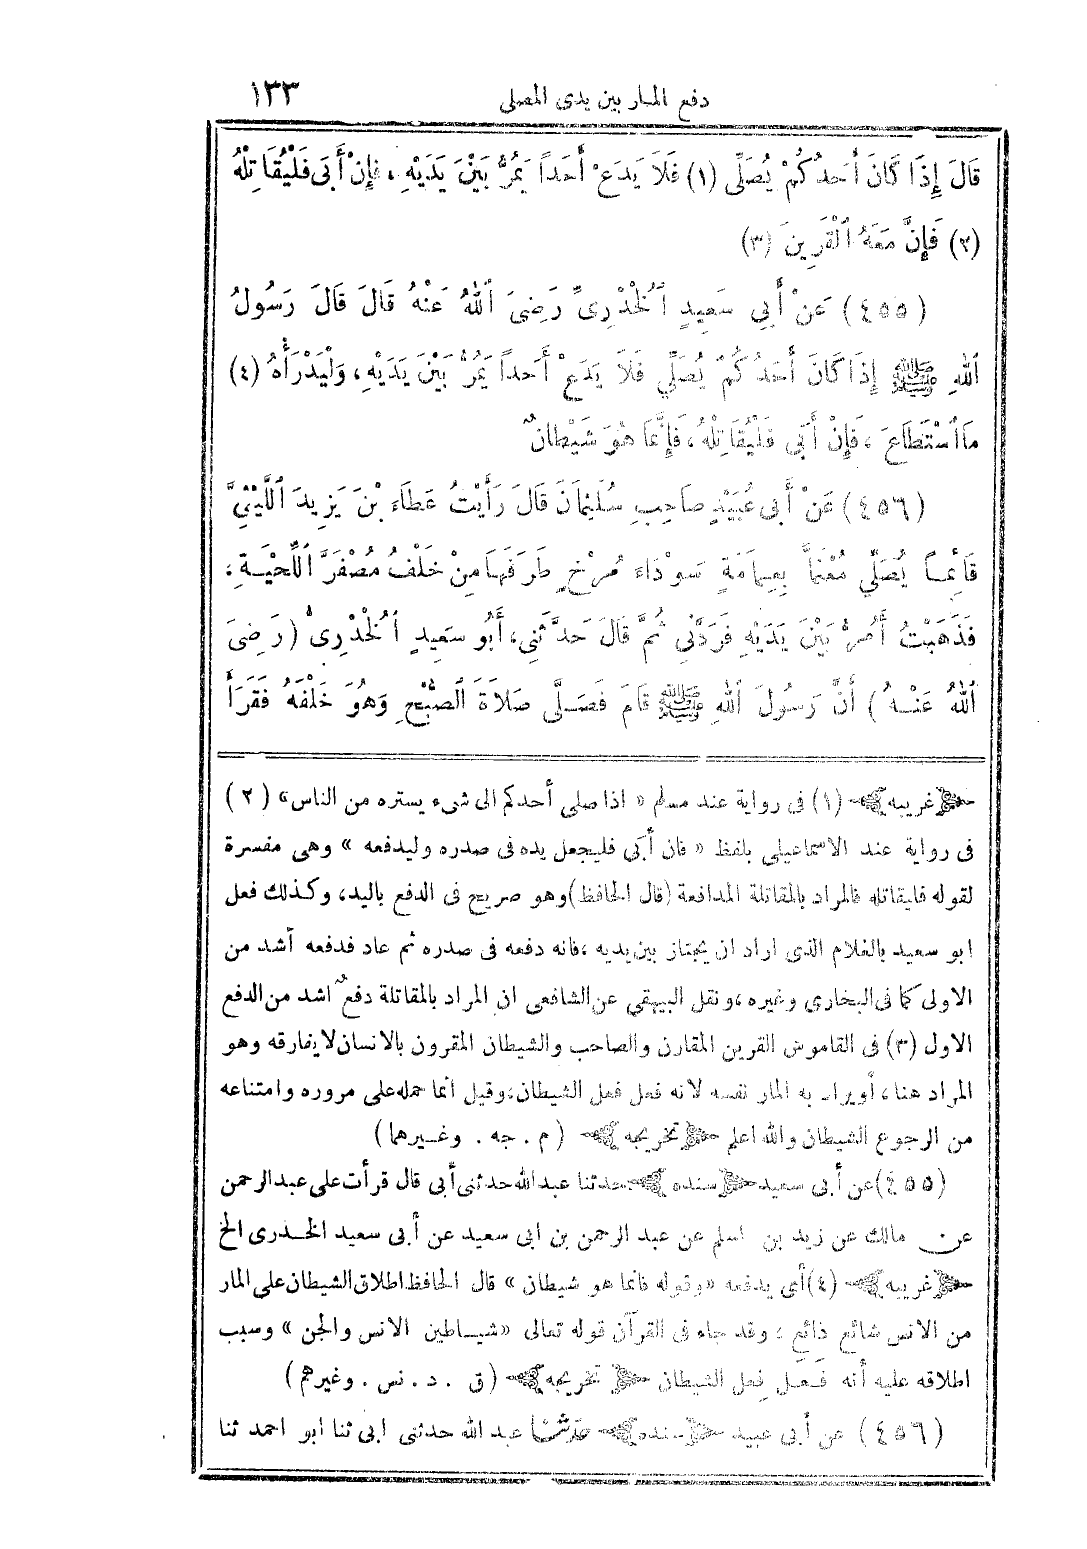 دفع المار بين يدى المصلى ١٣٣
قَالَ إِذَا كَانَ أَحَدُكُمْ يُصَلِّى (١) فَلَا يَدَعْ أَحَداً يَمُرُّ بَيْنَ يَدَيْهِ ، فَإِنْ أَبَى فَلْيُقَاتِلْهُ
(٢) فَإِنَّ مَعَهُ ٱلْقَرِينَ (٣)
(٤٥٥) عَنْ أَبِي سَعِيدٍ ٱلْخُدْرِىِّ رَضِىَ ٱللهُ عَنْهُ قَالَ قَالَ رَسُولُ
ٱللهِ ﷺ إِذَا كَانَ أَحَدُكُمْ يُصَلِّي فَلَا يَدَعْ أَحَداً يَمُرُّ بَيْنَ يَدَيْهِ ، وَلْيَدْرَأْهُ (٤)
مَا ٱسْتَطَاعَ ، فَإِنْ أَبَى فَلْيُقَاتِلْهُ ، فَإِنَّمَا هُوَ شَيْطَانٌ
(٤٥٦) عَنْ أَبِى عُبَيْدٍ صَاحِبِ سُلَيْمَانَ قَالَ رَأَيْتُ عَطَاءَ بْنَ يَزِيدَ ٱللَّيْثِيَّ
قَائِمًا يُصَلِّي مُعْتَمًّا بِعِمَامَةٍ سَوْدَاءَ مُرْخٍ طَرَفَهَا مِنْ خَلْفُ مُصْفَرَّ ٱللِّحْيَةِ ،
فَذَهَبْتُ أَمُرُّ بَيْنَ يَدَيْهِ فَرَدَّنِي ثُمَّ قَالَ حَدَّثَنِي ، أَبُو سَعِيدٍ ٱلْخُدْرِىُّ (رَضِىَ
ٱللهُ عَنْهُ) أَنَّ رَسُولَ ٱللهِ ﷺ قَامَ فَصَلَّى صَلَاةَ ٱلصُّبْحِ وَهُوَ خَلْفَهُ فَقَرَأَ
غريبه (١) فى رواية عند مسلم « اذا صلى أحدكم الى شىء يستره من الناس» (٢)
فى رواية عند الاسماعيلى بلفظ « فان أبى فليجعل يده فى صدره وليدفعه » وهى مفسرة
لقوله فليقاتله فالمراد بالمقاتلة المدافعة (قال الحافظ) وهو صريح فى الدفع باليد، وكذلك فعل
ابو سعيد بالغلام الذى اراد ان يجتاز بين يديه ، فانه دفعه فى صدره ثم عاد فدفعه أشد من
الاولى كما فى البخارى وغيره ، ونقل البيهقى عن الشافعى ان المراد بالمقاتلة دفعٌ اشد من الدفع
الاول (٣) فى القاموس القرين المقارن والصاحب والشيطان المقرون بالانسان لا يفارقه وهو
المراد هنا ، أو يراد به المار نفسه لانه فعل فعل الشيطان، وقيل انما حمله على مروره وامتناعه
من الرجوع الشيطان والله اعلم تخريجه (م . جه . وغيرهما)
(٤٥٥) عن أبى سعيد سنده حدثنا عبد الله حدثنى أبى قال قرأت على عبد الرحمن
عن مالك عن زيد بن اسلم عن عبد الرحمن بن ابى سعيد عن أبى سعيد الخدرى الخ
غريبه (٤) أى يدفعه «وقوله فانما هو شيطان » قال الحافظ اطلاق الشيطان على المار
من الانس شائع ذائع ، وقد جاء فى القرآن قوله تعالى «شياطين الانس والجن » وسبب
اطلاقه عليه أنه فَعَل فِعل الشيطان تخريجه (ق . د . نس . وغيرهم)
(٤٥٦) عن أبى عبيد سنده حدثنا عبد الله حدثنى ابى ثنا ابو احمد ثنا